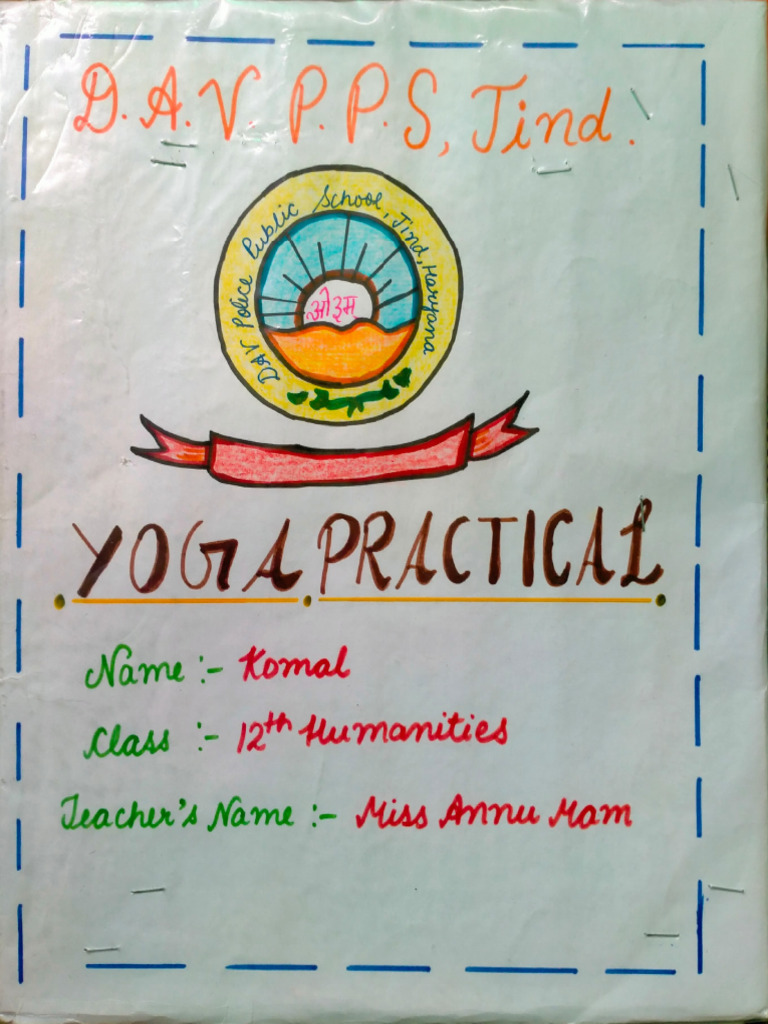 D.A.V. P.P.S, Jind.
DAV Police Public School, Jind, Haryana
ओ३म्
YOGA PRACTICAL
Name :- Komal
Class :- 12th Humanities
Teacher's Name :- Miss Annu Mam